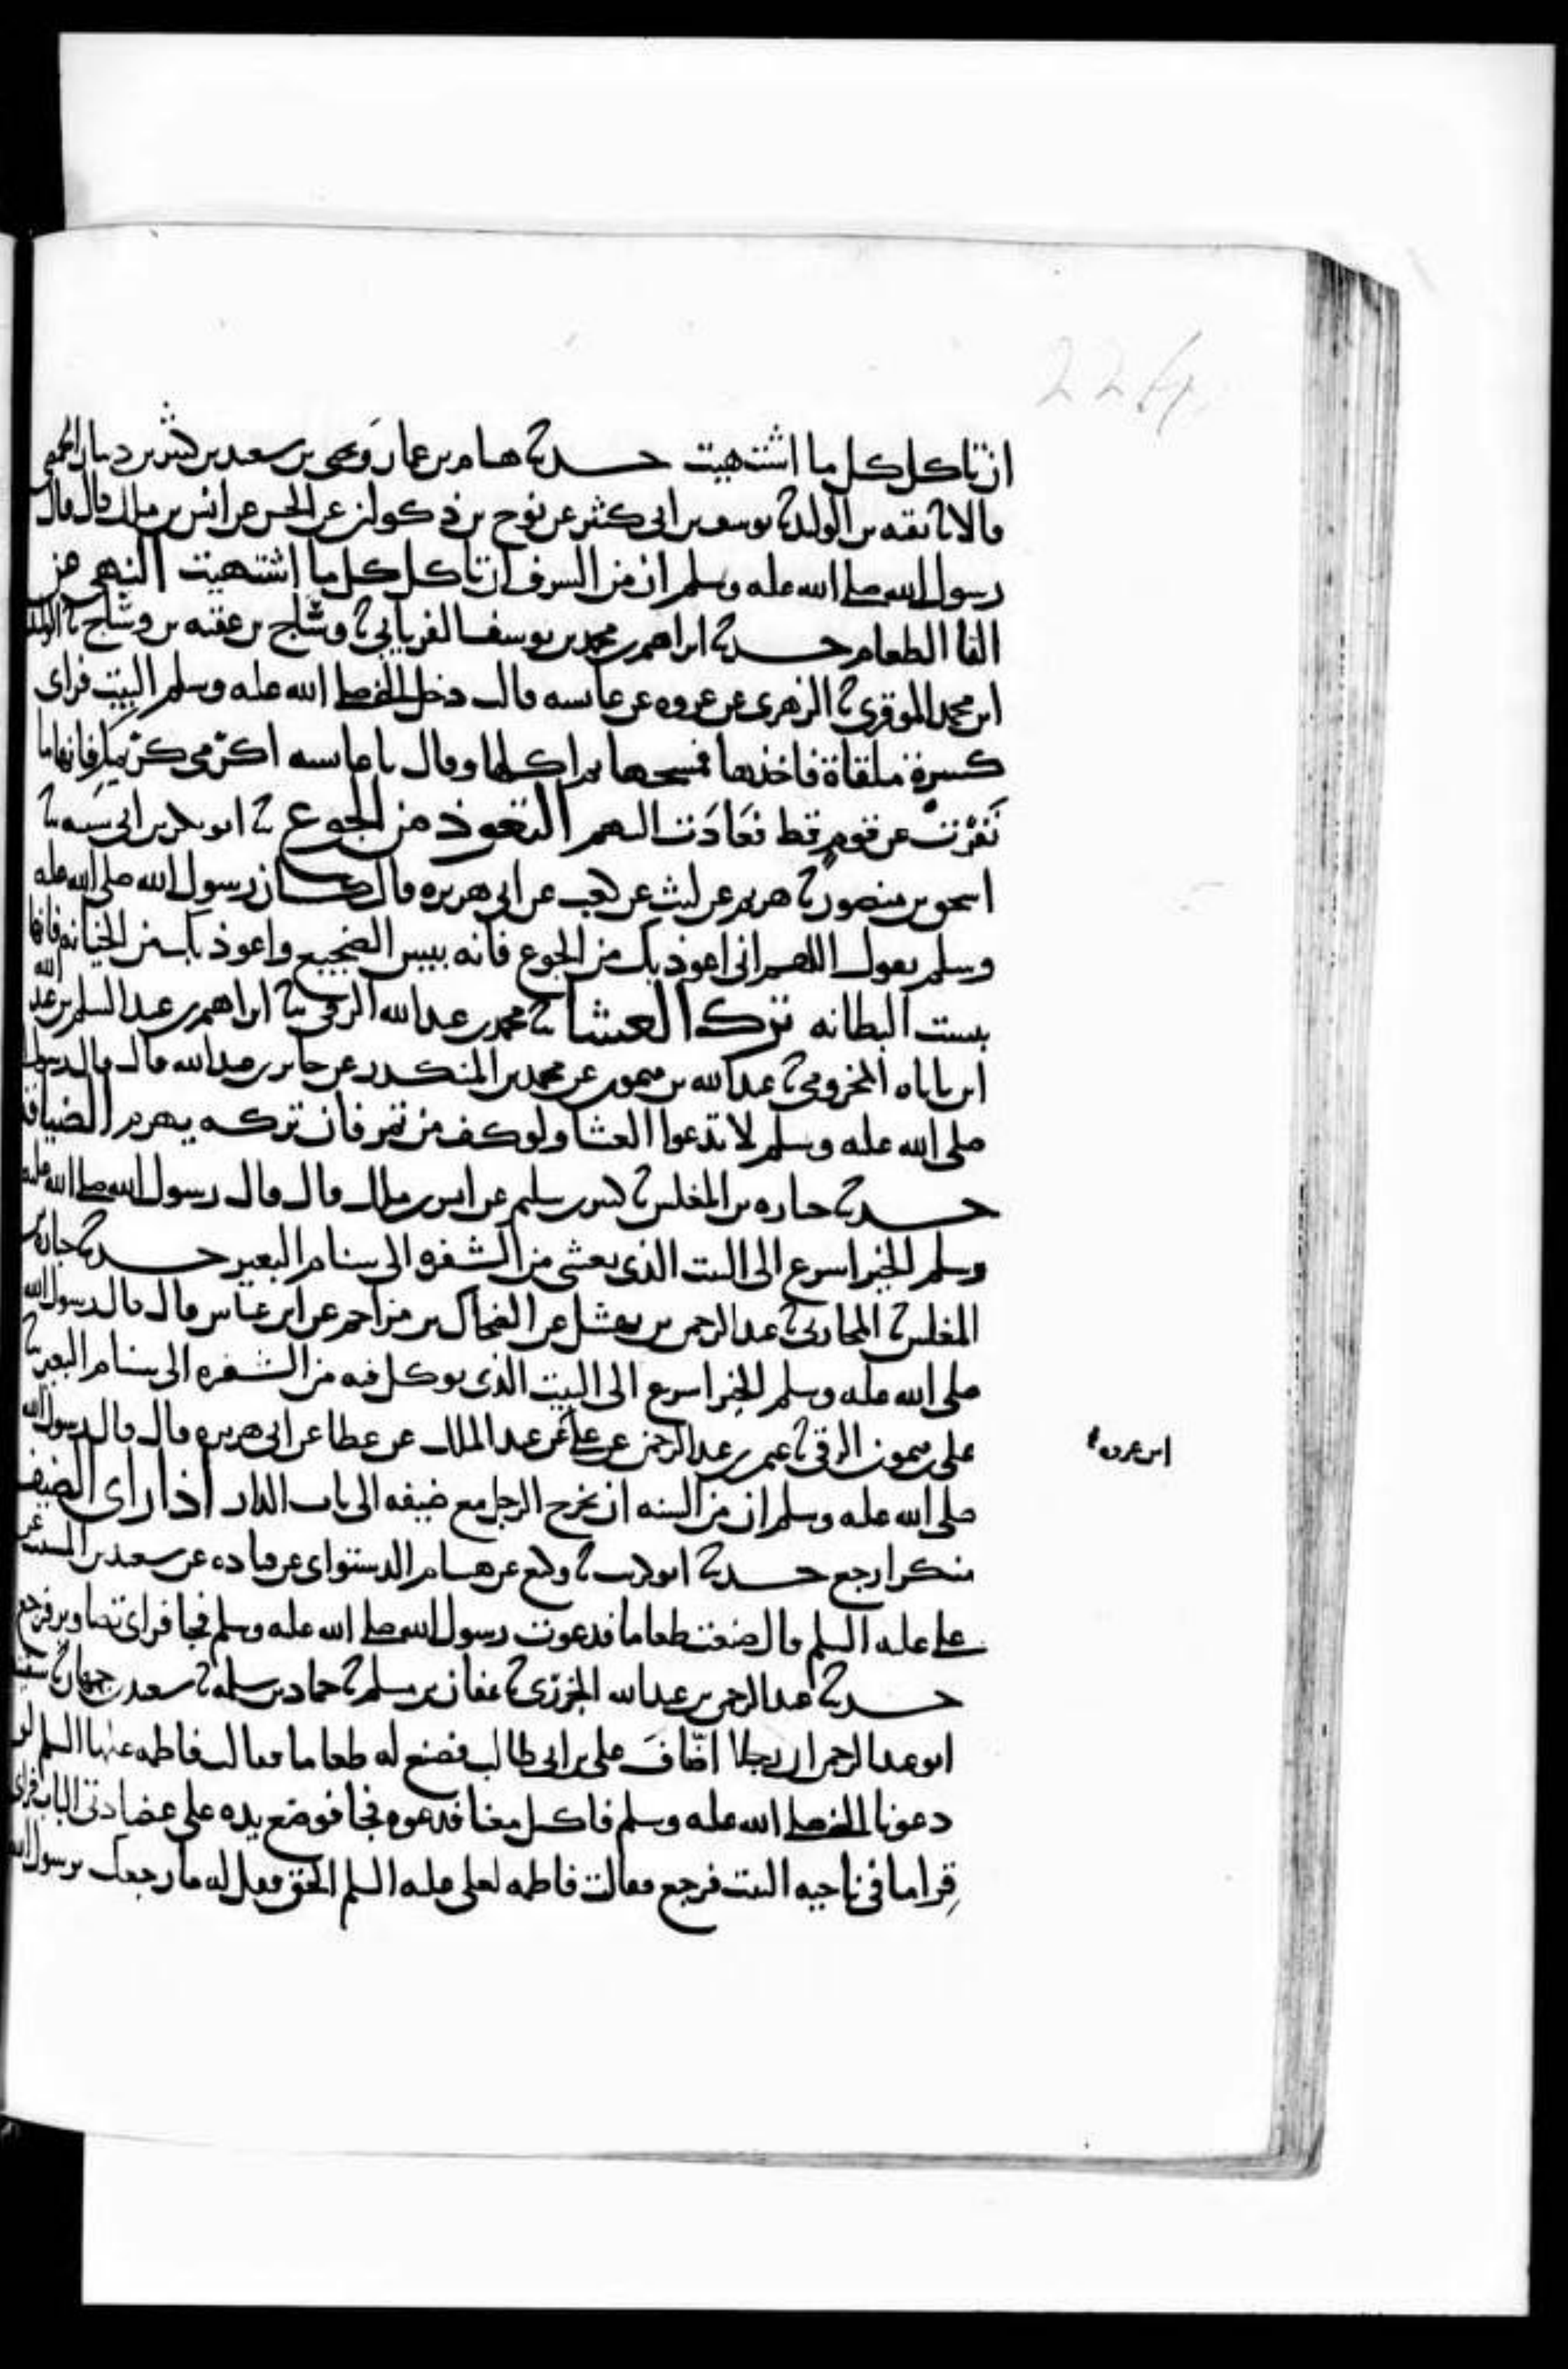 224
ان تاكل كل ما اشتهيت حدثنا هشام بن عمار ويحيى بن سعيد بن كثير بن دينار الحمصي
قالا نا بقيه بن الوليد نا يوسف بن ابى كثير عن نوح بن ذكوان عن الحسن عن انس بن ملك قال قال
رسول الله صلى الله عليه وسلم ان من السرف ان تاكل كل ما اشتهيت النهي عن
القا الطعام حدثنا ابراهيم بن محمد بن يوسف الفريابي نا وساج بن عقبه بن وساج نا الوليد
ابن محمد الموقري نا الزهري عن عروه عن عايشه قالت دخل النبي صلى الله عليه وسلم البيت فراى
كسرة ملقاة فاخذها فمسحها ثم اكلها وقال يا عايشه اكرمي كريمك فانها ما
نفرت عن قوم قط فعادت اليهم التعوذ من الجوع نا ابو بكر بن ابى شيبه نا
اسحق بن منصور نا هريم عن ليث عن كعب عن ابى هريره قال كان رسول الله صلى الله عليه
وسلم يقول اللهم انى اعوذ بك من الجوع فانه بيس الضجيع واعوذ بك من الخيانه فانها
بيست البطانه ترك العشا نا محمد بن عبد الله الرقي نا ابراهيم بن عبد السلم بن عبد الله
ابن باباه المخزومي نا عبد الله بن ميمون عن محمد بن المنكدر عن جابر بن عبد الله قال قال رسول
صلى الله عليه وسلم لا تدعوا العشا ولو كف من تمر فان تركه يهرم الضيافه
حدثنا جباره بن المغلس نا كثير بن سليم عن انس بن ملك قال قال رسول الله صلى الله عليه
وسلم الخير اسرع الى البيت الذى يغشى من الشفره الى سنام البعير حدثنا جباره بن
المغلس نا المحاربي نا عبد الرحمن بن نهشل عن الضحاك بن مزاحم عن ابن عباس قال قال رسول الله
صلى الله عليه وسلم الخير اسرع الى البيت الذى يوكل فيه من الشفره الى سنام البعير نا
على بن ميمون الرقى نا عثمن بن عبد الرحمن عن على عن عبد الملك عن عطا عن ابى هريره قال قال رسول الله
ابن عروه
صلى الله عليه وسلم ان من السنه ان يخرج الرجل مع ضيفه الى باب الدار اذا راى الضيف
منكرا رجع حدثنا ابو كريب نا وكيع عن هشام الدستواى عن قتاده عن سعيد بن المسيب عن
على عليه السلم قال صنعت طعاما فدعوت رسول الله صلى الله عليه وسلم فجا فراى تصاوير فرجع
حدثنا عبد الرحمن بن عبد الله الجزري نا عفان بن مسلم نا حماد بن سلمه نا سعيد بن جمهان نا سفينه
ابو عبد الرحمن ان رجلا اضاف على بن ابى طالب فصنع له طعاما فقالت فاطمه عليها السلم لو
دعونا النبي صلى الله عليه وسلم فاكل معنا فدعوه فجا فوضع يده على عضادتى الباب فراى
قراما فى ناحيه البيت فرجع فقالت فاطمه لعلى عليه السلم الحق فقل له ما رجعك يرسول الله